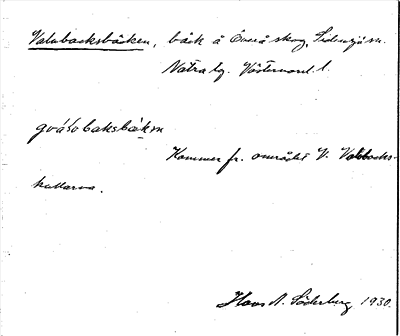 Valabacksbäcken, bäck å Överå skog, Sidensjö sn.
Nätra hg. Västernorrl. l.
Kommer fr. området V. Valabacks-
kullarna.
Hans A. Söderberg 1930.